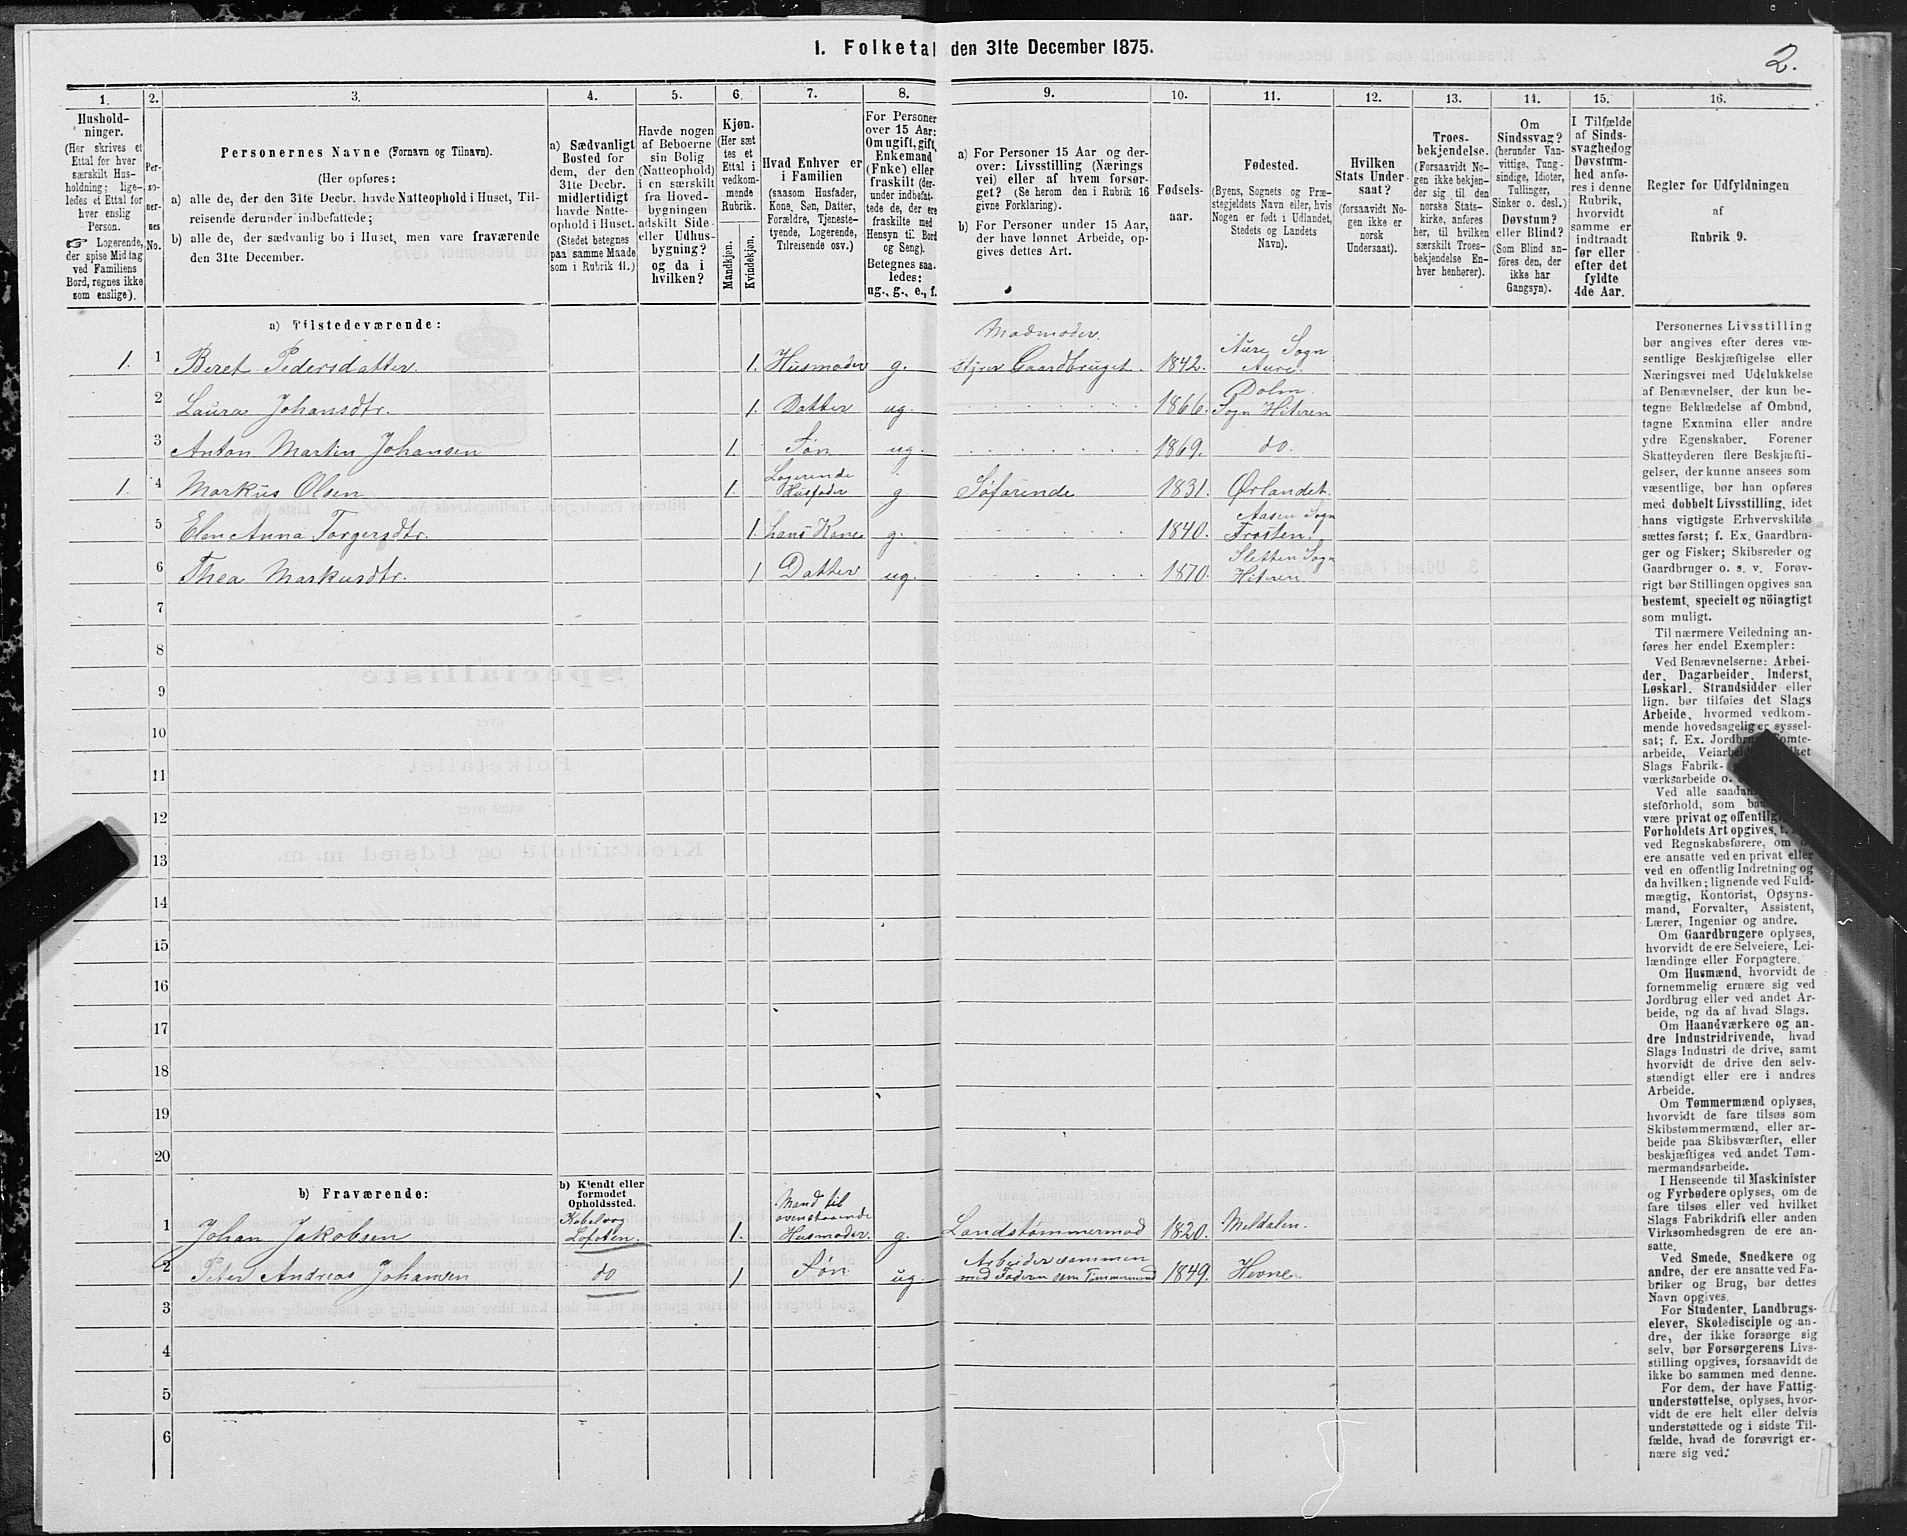 1. Folketal den 31te December 1875.
2.
1.
2.
3.
4.
5.
6.
7.
8.
9.
10.
11.
12.
13.
14.
15.
16.
Hushold-
ninger.
(Her skrives et
Ettal for hver
særskilt Hus-
holdning; lige-
ledes et Ettal for
hver enslig
Person.
☞ Logerende,
der spise Middag
ved Familiens
Bord, regnes ikke
som enslige).
Per-
so-
ner-
nes
No.
Personernes Navne (Fornavn og Tilnavn).
(Her opføres:
a) alle de, der den 31te Decbr. havde Natteophold i Huset, Til-
reisende derunder indbefattede;
b) alle de, der sædvanlig bo i Huset, men vare fraværende
den 31te December.
a) Sædvanligt
Bosted for
dem, der den
31te Decbr.
midlertidigt
havde Natte-
ophold i Huset.
(Stedet betegnes
paa samme Maade
som i Rubrik 11.)
Havde nogen
af Beboerne
sin Bolig
(Natteophold)
i en særskilt
fra Hoved-
bygningen
adskilt Side-
eller Udhus-
bygning?
og da i
hvilken?
Kjøn.
(Her sæt
tes et
Ettal i
vedkom-
mende
Rubrik.
Mandkjøn.
Kvindekjøn.
Hvad Enhver er
i Familien
(saasom Husfader,
Kone, Søn, Datter,
Forældre, Tjeneste-
tyende, Logerende,
Tilreisende osv.)
For Personer
over 15 Aar:
Om ugift, gift,
Enkemand
(Enke) eller
fraskilt (der-
under indbefat-
tede de, der ere
fraskilte med
Hensyn til Bord
og Seng).
Betegnes saa-
ledes:
ug., g., e., f.
a) For Personer 15 Aar og der-
over: Livsstilling (Nærings
vei) eller af hvem forsør-
get? (Se herom den i Rubrik 16
givne Forklaring).
b) For Personer under 15 Aar,
der have lønnet Arbeide, op-
gives dettes Art.
Fødsels-
aar.
Fødested.
(Byens, Sognets og Præ-
stegjeldets Navn eller, hvis
Nogen er født i Udlandet,
Stedets og Landets
Navn).
Hvilken
Stats Under-
saat?
(forsaavidt No-
gen ikke er
norsk
Undersaat).
Troes-
bekjendelse.
(Forsaavidt No-
gen ikke bekjen-
der sig til den
norske Stats-
kirke, anføres
her, til hvilken
særskilt Troes-
bekjendelse En-
hver henhører).
Om
Sindssvag?
(herunder Van-
vittige, Tung-
sindige, Idioter,
Tullinger,
Sinker o. desl.)
Døvstum?
eller Blind?
(Som Blind an-
føres den, der
ikke har
Gangsyn).
I Tilfælde
af Sinds-
svaghed og
Døvstum-
hed anfø-
res i denne
Rubrik,
hvorvidt
samme er
indtraadt
før eller
efter det
fyldte
4de Aar.
Regler for Udfyldningen
af
Rubrik 9.
a) Tilstedeværende:
Madmoder.
Aure Sogn
1. 1 Beret Pedersdatter. 1. Husmoder g. styrer Gaardbruget. 1842. Aure.
Dolm
2 Laura Johansdtr. 1. Datter ug. 1866. Sogn Hiteren
3 Anton Martin Johansen 1. Søn ug. 1869. do.
Logerende
1. 4 Markus Olsen 1. Husfader g Søfarende 1831. Ørlandet.
Aasen Sogn
5 Elen Anna Torgersdtr. 1. hans Kone g. 1840. Frosten.
Sletten Sogn
6 Thea Markusdtr. 1 Datter ug. 1870. Hiteren
7
8
9
10
11
12
13
14
15
16
17
18
19
20
b) Fraværende:
b) Kjendt eller
formodet
Opholdssted.
Mand til
Kabelvaag ovenstaaende
1 Johan Jakobsen Lofoten. 1. Husmoder. g. Landstømmermod 1820. Meldalen.
Arbeider sammen
2 Peter Andreas Johansen do 1 Søn ug. med Faderen som Tømmermand 1849. Hevne.
3
4
5
6
Personernes Livsstilling
bør angives efter deres væ-
sentlige Beskjæftigelse eller
Næringsvei med Udelukkelse
af Benævnelser, der kun be-
tegne Beklædelse af Ombud,
tagne Examina eller andre
ydre Egenskaber. Forener
Skatteyderen flere Beskjæfti-
gelser, der kunne ansees som
væsentlige, bør han opføres
med dobbelt Livsstilling, idet
hans vigtigste Erhvervskilde
sættes først; f. Ex. Gaardbru-
ger og Fisker; Skibsreder og
Gaardbruger o. s. v. Forøv-
rigt bør Stillingen opgives saa
bestemt, specielt og nöiagtigt
som muligt.
Til nærmere Veiledning an-
føres her endel Exempler:
Ved Benævnelserne: Arbei-
der, Dagarbeider, Inderst,
Løskarl, Strandsidder eller
lign. bør tilføies det Slags
Arbeide, hvormed vedkom-
mende hovedsagelig er syssel-
sat; f. Ex. Jordbrug, Tomte-
arbeide, Veiarbeide, hvilket
Slags Fabrik-
værksarbeide o.
Ved alle saadanne
steforhold, som
være privat og offentlig,
Forholdets Art opgives,
ved Regnskabsførere, om
ere ansatte ved en privat eller
ved en offentlig Indretning og
da hvilken; lignende ved Fuld-
mægtig, Kontorist, Opsyns-
mand, Forvalter, Assistent,
Lærer, Ingeniør og andre.
Om Gaardbrugere oplyses,
hvorvidt de ere Selveiere, Lei-
lændinge eller Forpagtere.
Om Husmænd, hvorvidt de
fornemmelig ernære sig ved
Jordbrug eller ved andet Ar-
beide, og da af hvad Slags.
Om Haandværkere og an-
dre Industridrivende, hvad
Slags Industri de drive, samt
hvorvidt de drive den selv-
stændigt eller ere i andres
Arbeide.
Om Tømmermænd oplyses,
hvorvidt de fare tilsøs som
Skibstømmermænd, eller ar-
beide paa Skibsværfter, eller
beskjæftiges ved andet Tøm-
mermandsarbeide.
I Henseende til Maskinister
og Fyrbødere oplyses, om de
fare tilsøs eller ved hvilket
Slags Fabrikdrift eller anden
Virksomhedsgren de ere an-
satte.
Ved Smede, Snedkere og
andre, der ere ansatte ved Fa-
briker og Brug, bør dettes
Navn opgives.
For Studenter, Landbrugs-
elever, Skoledisciple og an-
dre, der ikke forsørge sig
selv, bør Forsørgerens Livs-
stilling opgives, forsaavidt de
ikke bo sammen med denne.
For dem, der have Fattig-
understøttelse, oplyses, hvor-
vidt de ere helt eller delvis
understøttede og i sidste Til-
fælde, hvad de forøvrigt er-
nære sig ved.